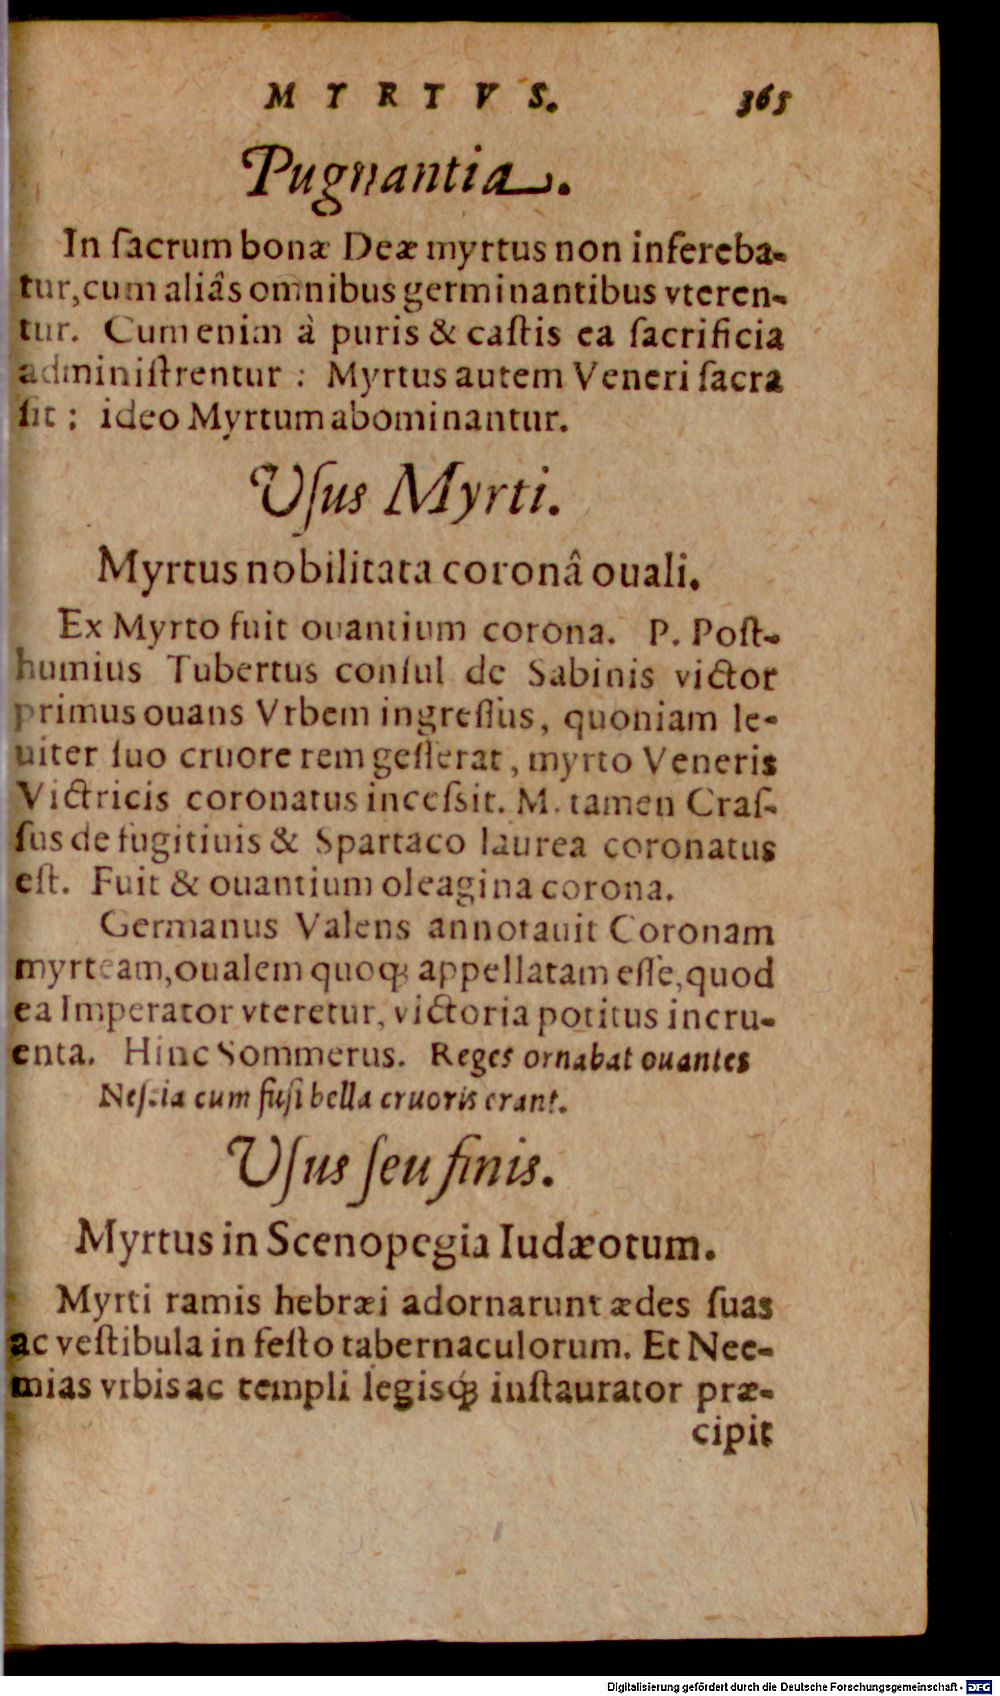 MYRTVS. 365
Pugnantia.
In ſacrum bonæ Deæ myrtus non infereba-
tur, cum aliâs omnibus germinantibus vteren-
tur. Cum enim à puris & caſtis ea ſacrificia
adminiſtrentur : Myrtus autem Veneri ſacra
ſit : ideo Myrtum abominantur.
Uſus Myrti.
Myrtus nobilitata coronâ ouali.
Ex Myrto fuit ouantium corona. P. Poſt-
humius Tubertus conſul de Sabinis victor
primus ouans Vrbem ingreſſus, quoniam le-
uiter ſuo cruore rem geſſerat, myrto Veneris
Victricis coronatus inceſsit. M. tamen Craſ-
ſus de fugitiuis & Spartaco laurea coronatus
eſt. Fuit & ouantium oleagina corona.
Germanus Valens annotauit Coronam
myrteam, oualem quoq; appellatam eſſe, quod
ea Imperator vteretur, victoria potitus incru-
enta. Hinc Sommerus. Reges ornabat ouantes
Neſcia cum fuſi bella cruoris erant.
Uſus ſeu finis.
Myrtus in Scenopegia Iudæotum.
Myrti ramis hebræi adornarunt ædes ſuas
ac veſtibula in feſto tabernaculorum. Et Nee-
mias vrbis ac templi legisq; inſtaurator præ-
cipit
Digitalisierung gefördert durch die Deutsche Forschungsgemeinschaft - DFG